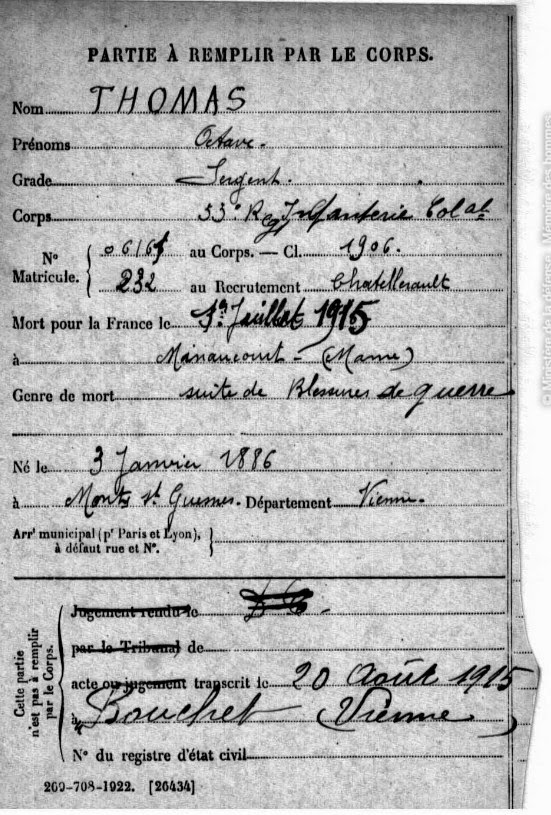 PARTIE À REMPLIR PAR LE CORPS.
Nom THOMAS
Prénoms Octave.
Grade Sergent.
Corps 33e Reg Infanterie Colale
No Matricule. 
au Corps. — Cl. 1906.
232 au Recrutement Chatellerault
Mort pour la France le Juillet 1915
à Minaucourt - (Marne)
Genre de mort suite de Blessures de guerre
Né le 3 Janvier 1886
à Monts St Guesnes. Département Vienne.
Arrt municipal (pr Paris et Lyon),
à défaut rue et No.
Cette partie
n'est pas à remplir
par le Corps.
Jugement rendu le
par le Tribunal de
acte ou jugement transcrit le 20 Août 1915
à Bouchet (Vienne)
No du registre d'état civil
269-708-1922. [26434]